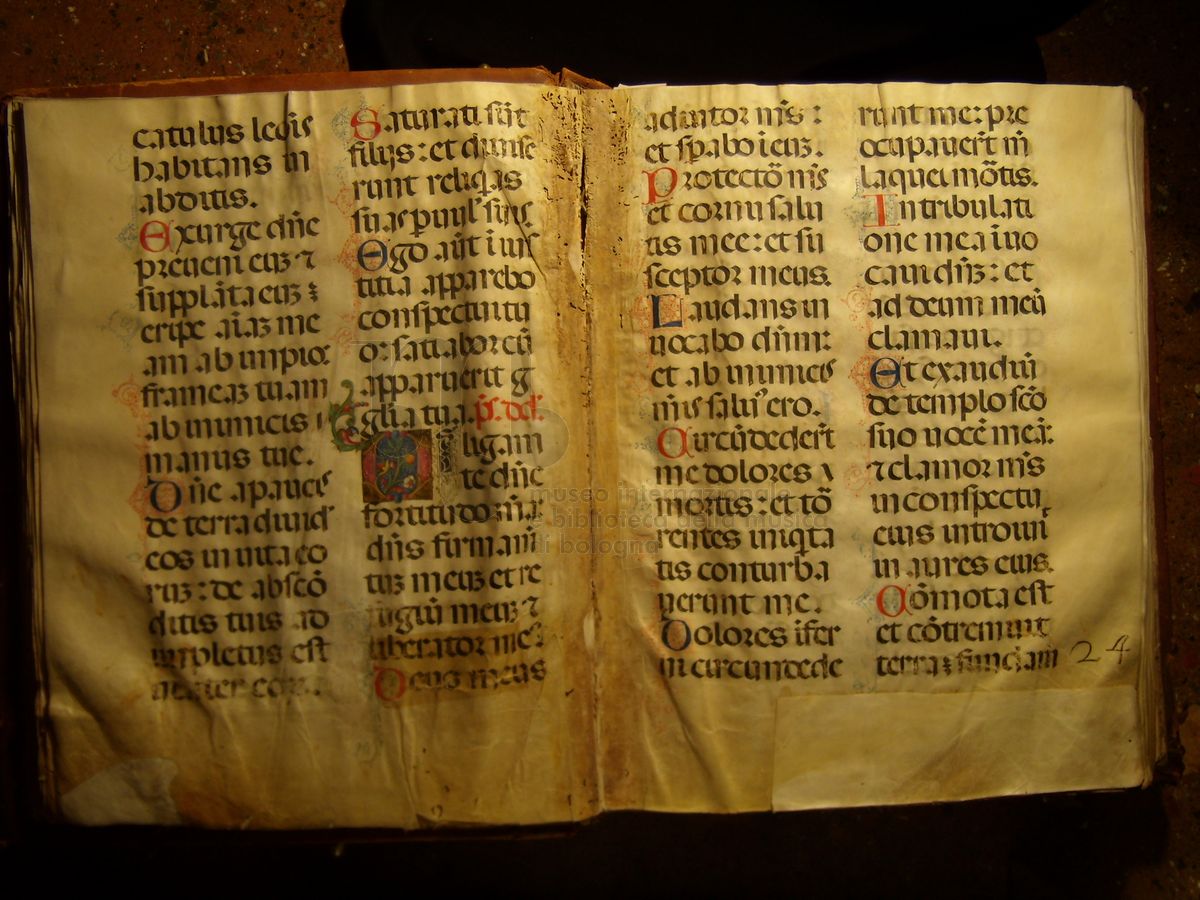 catulus leōis
habitans in
abditis.
Exurge dn̄e
preueni euꝫ ⁊
supplāta euꝫ ꝛ
eripe aīaꝫ me
am ab impio:
frameaꝫ tuam
ab inimicis
manus tue.
Dn̄e a paucis
de terra diuid'
eos in uita eo
rūꝫ: de abscō
ditis tuis ad
impletus est
uenter eoꝝ.
Saturati sūt
filijs: et dimise
runt reliqͥas
suas puul' suis
Ego aūt i ius
titia apparebo
conspectui tu
o: satiabor cū
apparuerit g
gl̄ia tua. ps̄. dd̄.
Diligam
te dn̄e
fortitudo m̄a:
dn̄s firmam̄
tuꝫ meuꝫ et re
fugiū meuꝫ ⁊
liberator me':
Deus meus
adiutor m̄s:
et sp̄abo i euꝫ.
Protectō m̄s
et cornu salu
tis mee: et su
sceptor meus.
Laudans in
uocabo dn̄m:
et ab inimicis
m̄is salu' ero.
Circūdedert̄
me dolores
mortis: et tō
rentes iniqͥta
tis conturba
uerunt me.
Dolores ifer
ni circumdede
runt me: pre
ocupauert̄ m̄
laquei mōtis.
In tribulati
one mea iuo
caui dn̄ꝫ: et
ad deum meū
clamaui.
Et exaudiū
de templo scō
suo uocē meā:
⁊ clamor m̄s
in conspectu
eius introiuit̄
in aures eius.
Cōmota est
et cōtremuit
terra: ꝛ fundam̄
24
museo internazionale
e biblioteca della musica
di bologna